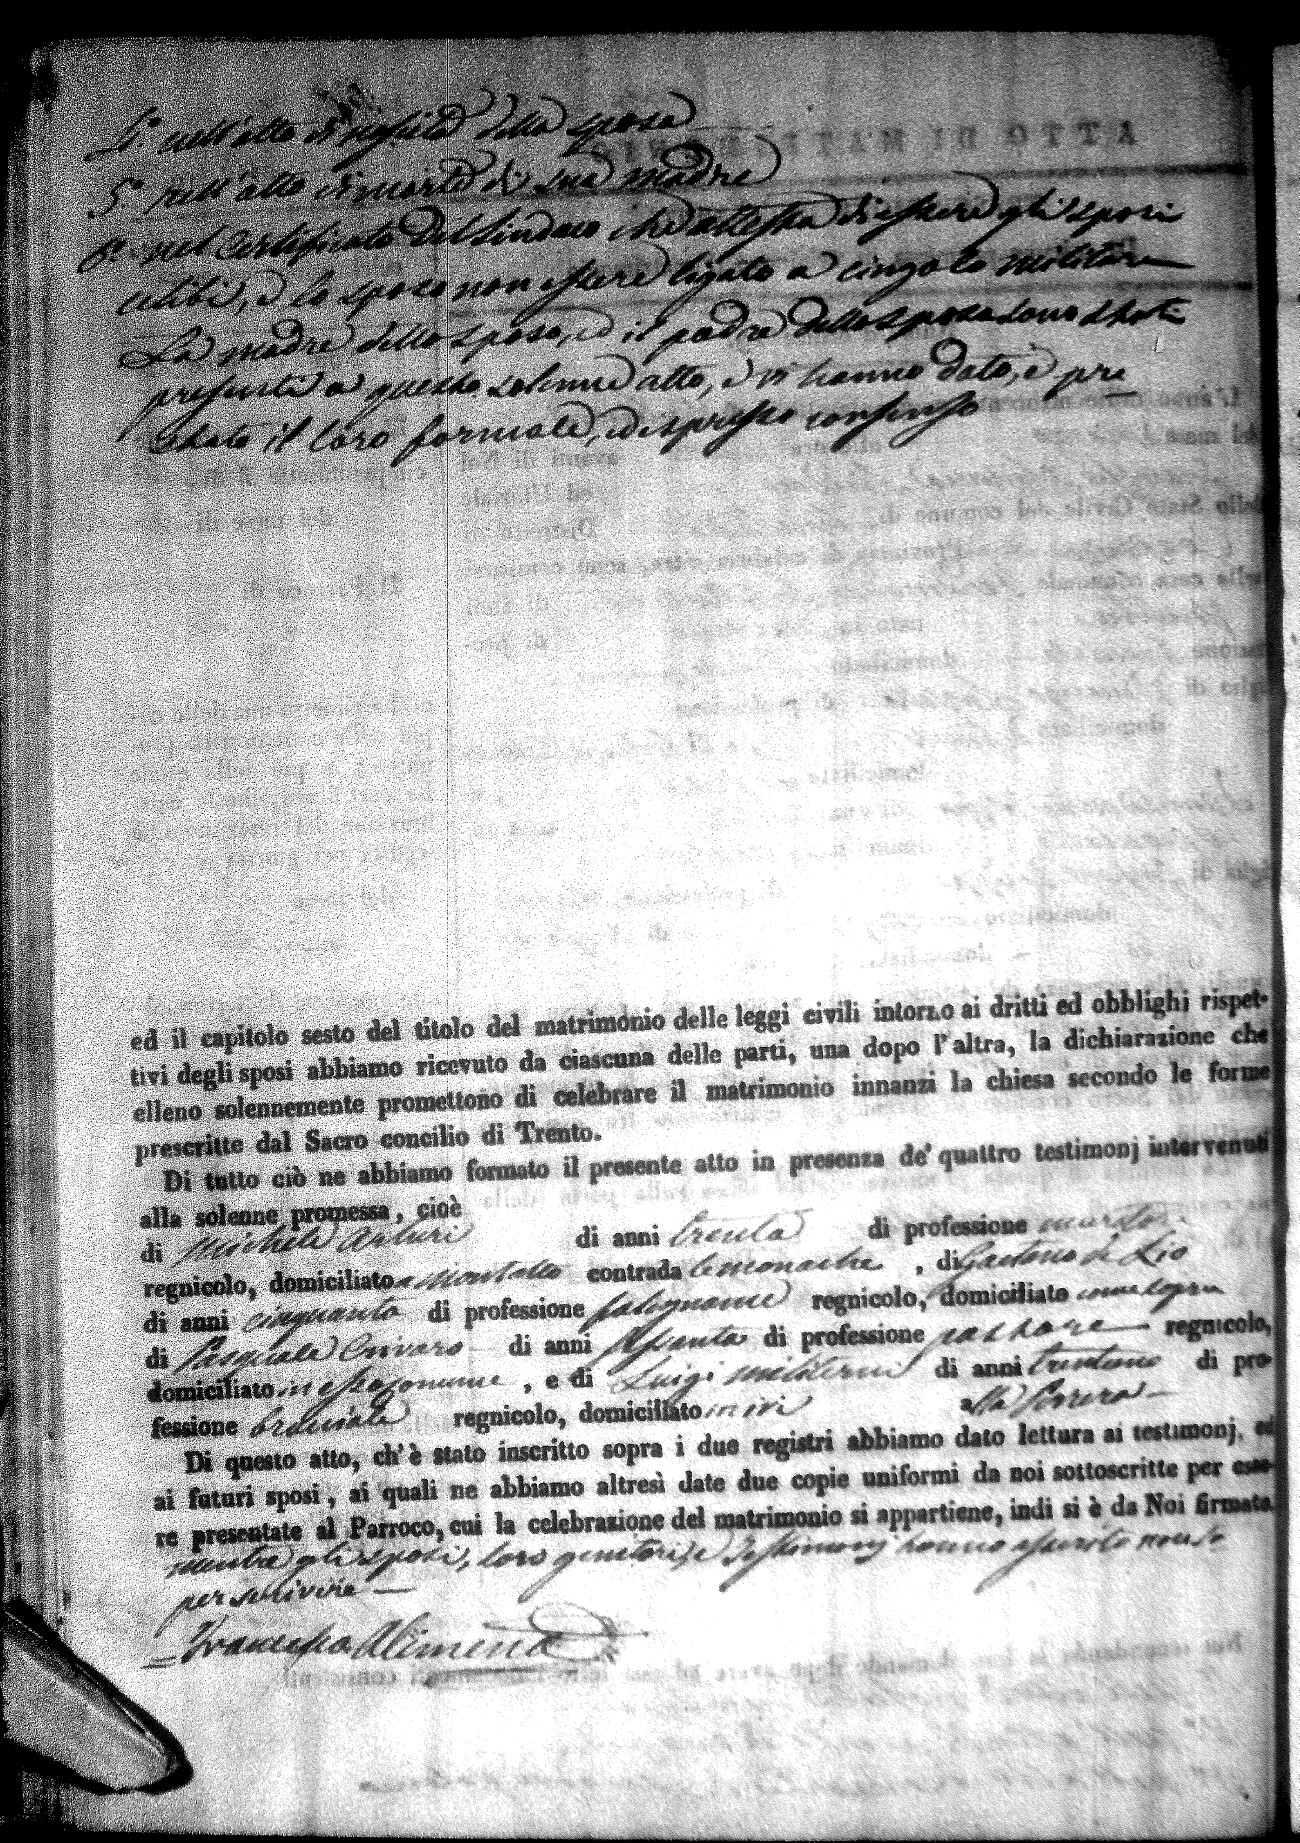 4.° nell'atto di nascita della sposa
5.° nell'atto di morte di sua madre
6.° nel Certificato del Sindaco che attesta di essere gli sposi
celibi, e lo sposo non essere ligato a cingolo militare
La madre dello sposo, ed il padre della sposa sono stati
presenti a questo solenne atto, e vi hanno dato, e pre
stato il loro formale, ed espresso consenso
ed il capitolo sesto del titolo del matrimonio delle leggi civili intorno ai dritti ed obblighi rispet-
tivi degli sposi abbiamo ricevuto da ciascuna delle parti, una dopo l'altra, la dichiarazione che
elleno solennemente promettono di celebrare il matrimonio innanzi la chiesa secondo le forme
prescritte dal Sacro concilio di Trento.
Di tutto ciò ne abbiamo formato il presente atto in presenza de' quattro testimonj intervenuti
alla solenne promessa, cioè
di Michele Arturi di anni trenta di professione
regnicolo, domiciliato a Montalto contrada le monache, di Gaetano de Lio
di anni cinquanta di professione falegname regnicolo, domiciliato come sopra
di Pasquale di anni di professione regnicolo,
domiciliato in esso comune, e di Luigi di anni trentuno di pro-
fessione bracciale regnicolo, domiciliato in ivi alla
Di questo atto, ch'è stato inscritto sopra i due registri abbiamo dato lettura ai testimonj, ed
ai futuri sposi, ai quali ne abbiamo altresì date due copie uniformi da noi sottoscritte per esse-
re presentate al Parroco, cui la celebrazione del matrimonio si appartiene, indi si è da Noi firmato
mentre gli sposi, loro genitori, e Testimonj hanno asserito non sa
per scrivere —
Francesco Alimena